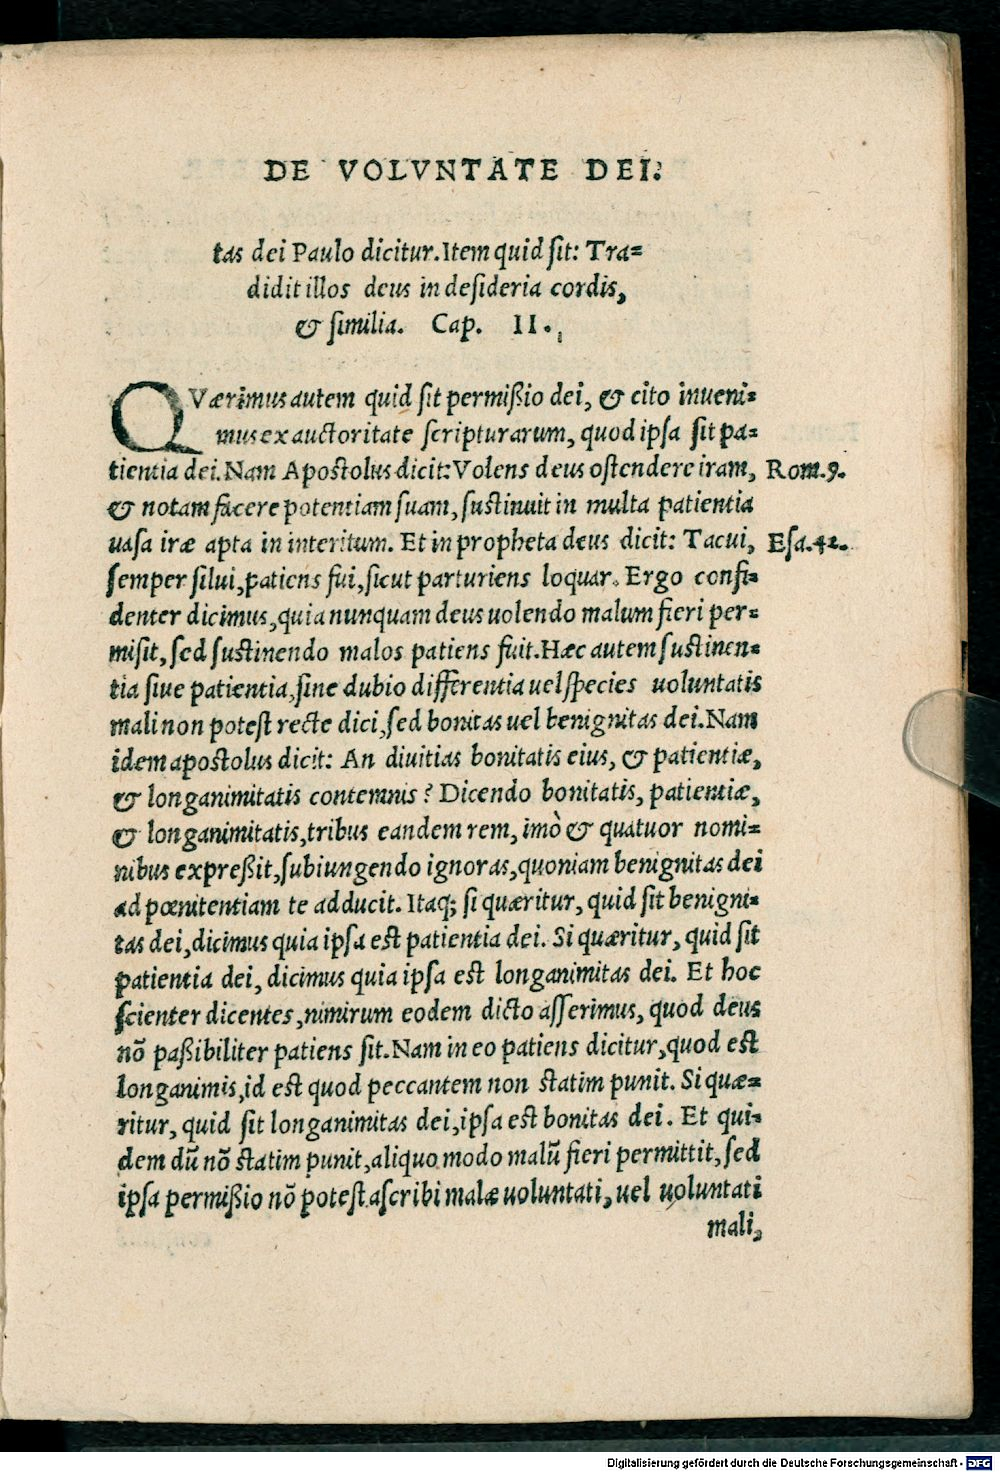 DE VOLVNTATE DEI.
tas dei Paulo dicitur. Item quid sit: Tra=
didit illos deus in desideria cordis,
& similia. Cap. II.
QVærimus autem quid sit permißio dei, & cito inueni=
mus ex auctoritate scripturarum, quod ipsa sit pa=
tientia dei. Nam Apostolus dicit: Volens deus ostendere iram, Rom.9.
& notam facere potentiam suam, sustinuit in multa patientia
uasa iræ apta in interitum. Et in propheta deus dicit: Tacui, Esa.42.
semper silui, patiens fui, sicut parturiens loquar. Ergo confi=
denter dicimus, quia nunquam deus uolendo malum fieri per=
misit, sed sustinendo malos patiens fuit. Hæc autem sustinen=
tia siue patientia, sine dubio differentia uel species uoluntatis
mali non potest recte dici, sed bonitas uel benignitas dei. Nam
idem apostolus dicit: An diuitias bonitatis eius, & patientiæ,
& longanimitatis contemnis? Dicendo bonitatis, patientiæ,
& longanimitatis, tribus eandem rem, imò & quatuor nomi=
nibus expreßit, subiungendo ignoras, quoniam benignitas dei
ad pœnitentiam te adducit. Itaq; si quæritur, quid sit benigni=
tas dei, dicimus quia ipsa est patientia dei. Si quæritur, quid sit
patientia dei, dicimus quia ipsa est longanimitas dei. Et hoc
scienter dicentes, nimirum eodem dicto asserimus, quod deus
nō paßibiliter patiens sit. Nam in eo patiens dicitur, quod est
longanimis, id est quod peccantem non statim punit. Si quæ=
ritur, quid sit longanimitas dei, ipsa est bonitas dei. Et qui=
dem dū nō statim punit, aliquo modo malū fieri permittit, sed
ipsa permißio nō potest ascribi malæ uoluntati, uel uoluntati
mali,
Digitalisierung gefördert durch die Deutsche Forschungsgemeinschaft - DFG